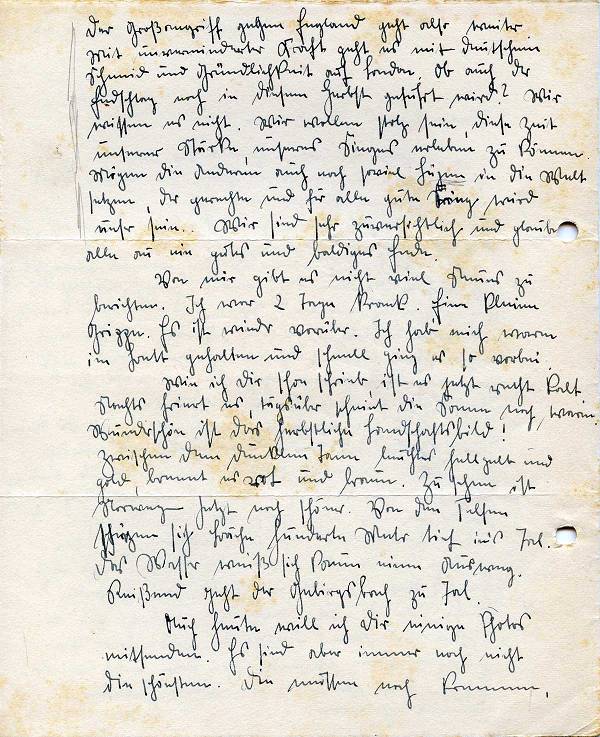 Der Großangriff gegen England geht also weiter
Mit unverminderter Kraft geht es mit deutschem
Schneid und Gründlichkeit auf London. Ob auch der
Endschlag noch in diesem Herbst geführt wird? Wir
wissen es nicht. Wir wollen stolz sein, diese Zeit
unserer Stärke, unseres Sieges erleben zu können.
Mögen die Anderen auch noch soviel Lügen in die Welt
setzen, der gerechte und für alle gute Krieg wird
unser sein.. Wir sind sehr zuversichtlich und glauben
alle an ein gutes und baldiges Ende.
Von mir gibt es nicht viel Neues zu
berichten. Ich war 2 Tage krank. Eine kleine
Grippe. Es ist wieder vorüber. Ich hab mich warm
im Bett gehalten und schnell ging es so vorbei.
Wie ich dir schon schrieb, ist es jetzt recht kalt.
Nachts friert es, tagsüber scheint die Sonne noch warm.
Wunderschön ist das herbstliche Landschaftsbild!
Zwischen dem dunklen Tann leuchtet hellgelb und
gold, brennt es rot und braun. Zu sehen ist
Norwegen jetzt noch schöner. Von den Felsen
sich Bäche hunderte Meter tief ins Tal.
Das Wasser weiß sich kaum einen Ausweg.
Reißend geht der Gebirgsbach zu Tal.
Auch heute will ich Dir einige Photos
mitsenden. Es sind aber immer noch nicht
die schönsten. Die müssen noch kommen,